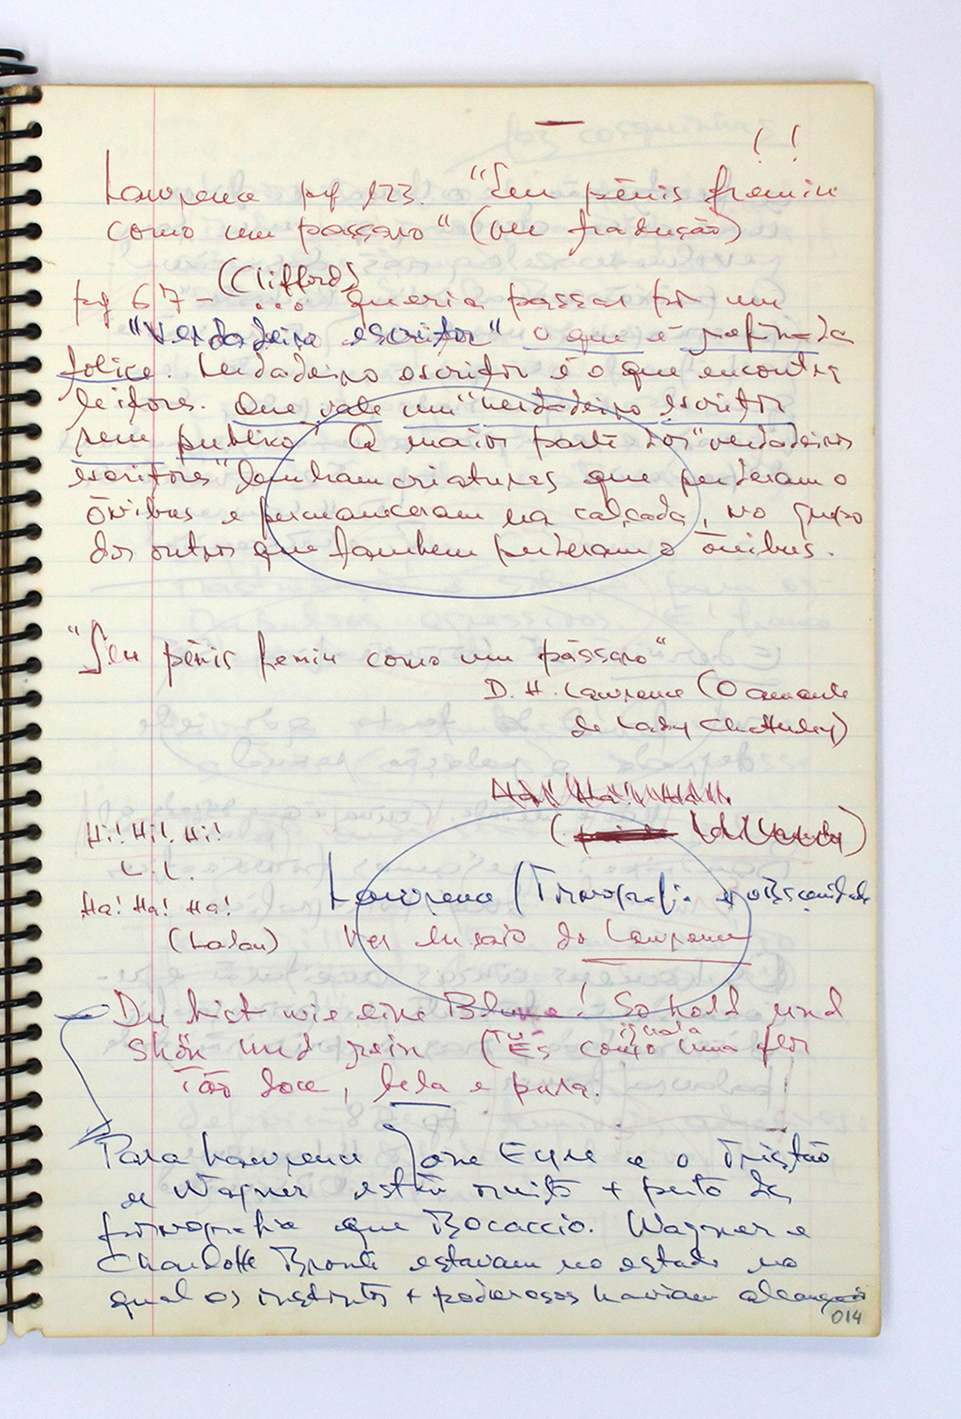 ! !
Lawrence pg 123. "Seu pênis fremiu
como um pássaro" (ver tradução)
(Clifford)
pg 67 - ... queria passar por um
"Verdadeiro escritor" o que é refinada
tolice. Verdadeiro escritor é o que encontra
leitores. Que vale um "verdadeiro escritor
sem publico" A maior parte dos "verdadeiros
escritores" lembram criaturas que perderam o
ônibus e permaneceram na calçada, no grupo
dos outros que tambem perderam o ônibus.
"Seu pênis fremiu como um pássaro"
D. H. Lawrence (O amante
de Lady Chatterley)
Ha! Ha!
Hi! Hi! Hi!
L. L.
Ha! Ha! Ha!
(Lalau)
Lawrence (Pornografia e obscenidade
Ver ensaio de Lawrence
Du bist wie eine Blume! So hold und
Shön und rein (Tu És como igual a uma flor
tão doce, bela e pura.
Para Lawrence Jane Eyre e o Tristão
de Wagner estão muito + perto da
pornografia que Bocaccio. Wagner e
Charlotte Bronte estavam no estado no
qual os instintos + poderosos haviam alcançado
014